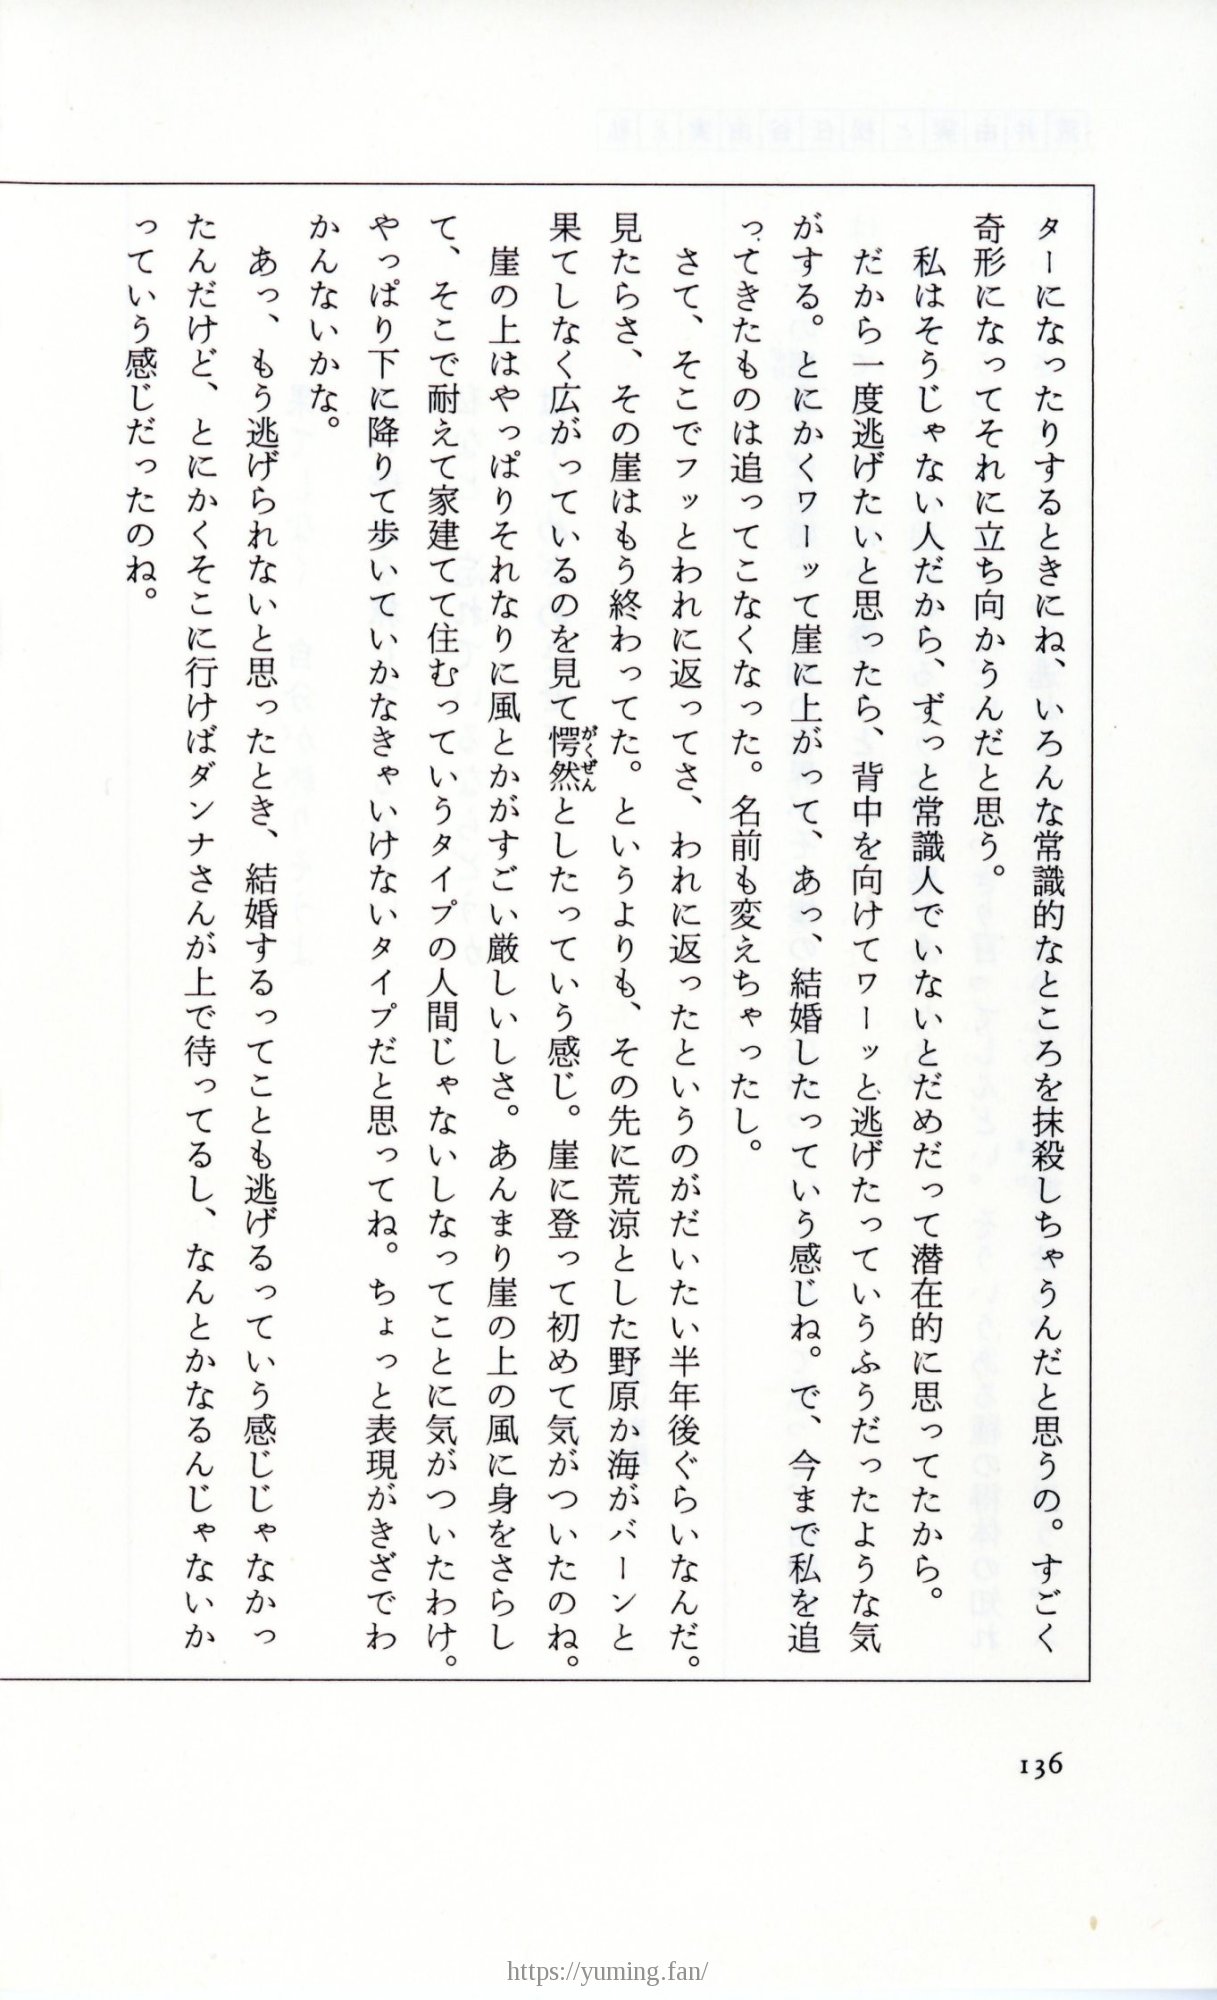 ターになったりするときにね、いろんな常識的なところを抹殺しちゃうんだと思うの。すごく
奇形になってそれに立ち向かうんだと思う。
私はそうじゃない人だから、ずっと常識人でいないとだめだって潜在的に思ってたから。
だから一度逃げたいと思ったら、背中を向けてワーッと逃げたっていうふうだったような気
がする。とにかくワーッて崖に上がって、あっ、結婚したっていう感じね。で、今まで私を追
ってきたものは追ってこなくなった。名前も変えちゃったし。
さて、そこでフッとわれに返ってさ、われに返ったというのがだいたい半年後ぐらいなんだ。
見たらさ、その崖はもう終わってた。というよりも、その先に荒涼とした野原か海がバーンと
果てしなく広がっているのを見て愕然としたっていう感じ。崖に登って初めて気がついたのね。
がくぜん
崖の上はやっぱりそれなりに風とかがすごい厳しいしさ。あんまり崖の上の風に身をさらし
て、そこで耐えて家建てて住むっていうタイプの人間じゃないしなってことに気がついたわけ。
やっぱり下に降りて歩いていかなきゃいけないタイプだと思ってね。ちょっと表現がきざでわ
かんないかな。
あっ、もう逃げられないと思ったとき、結婚するってことも逃げるっていう感じじゃなかっ
たんだけど、とにかくそこに行けばダンナさんが上で待ってるし、なんとかなるんじゃないか
っていう感じだったのね。
136
https://yuming.fan/